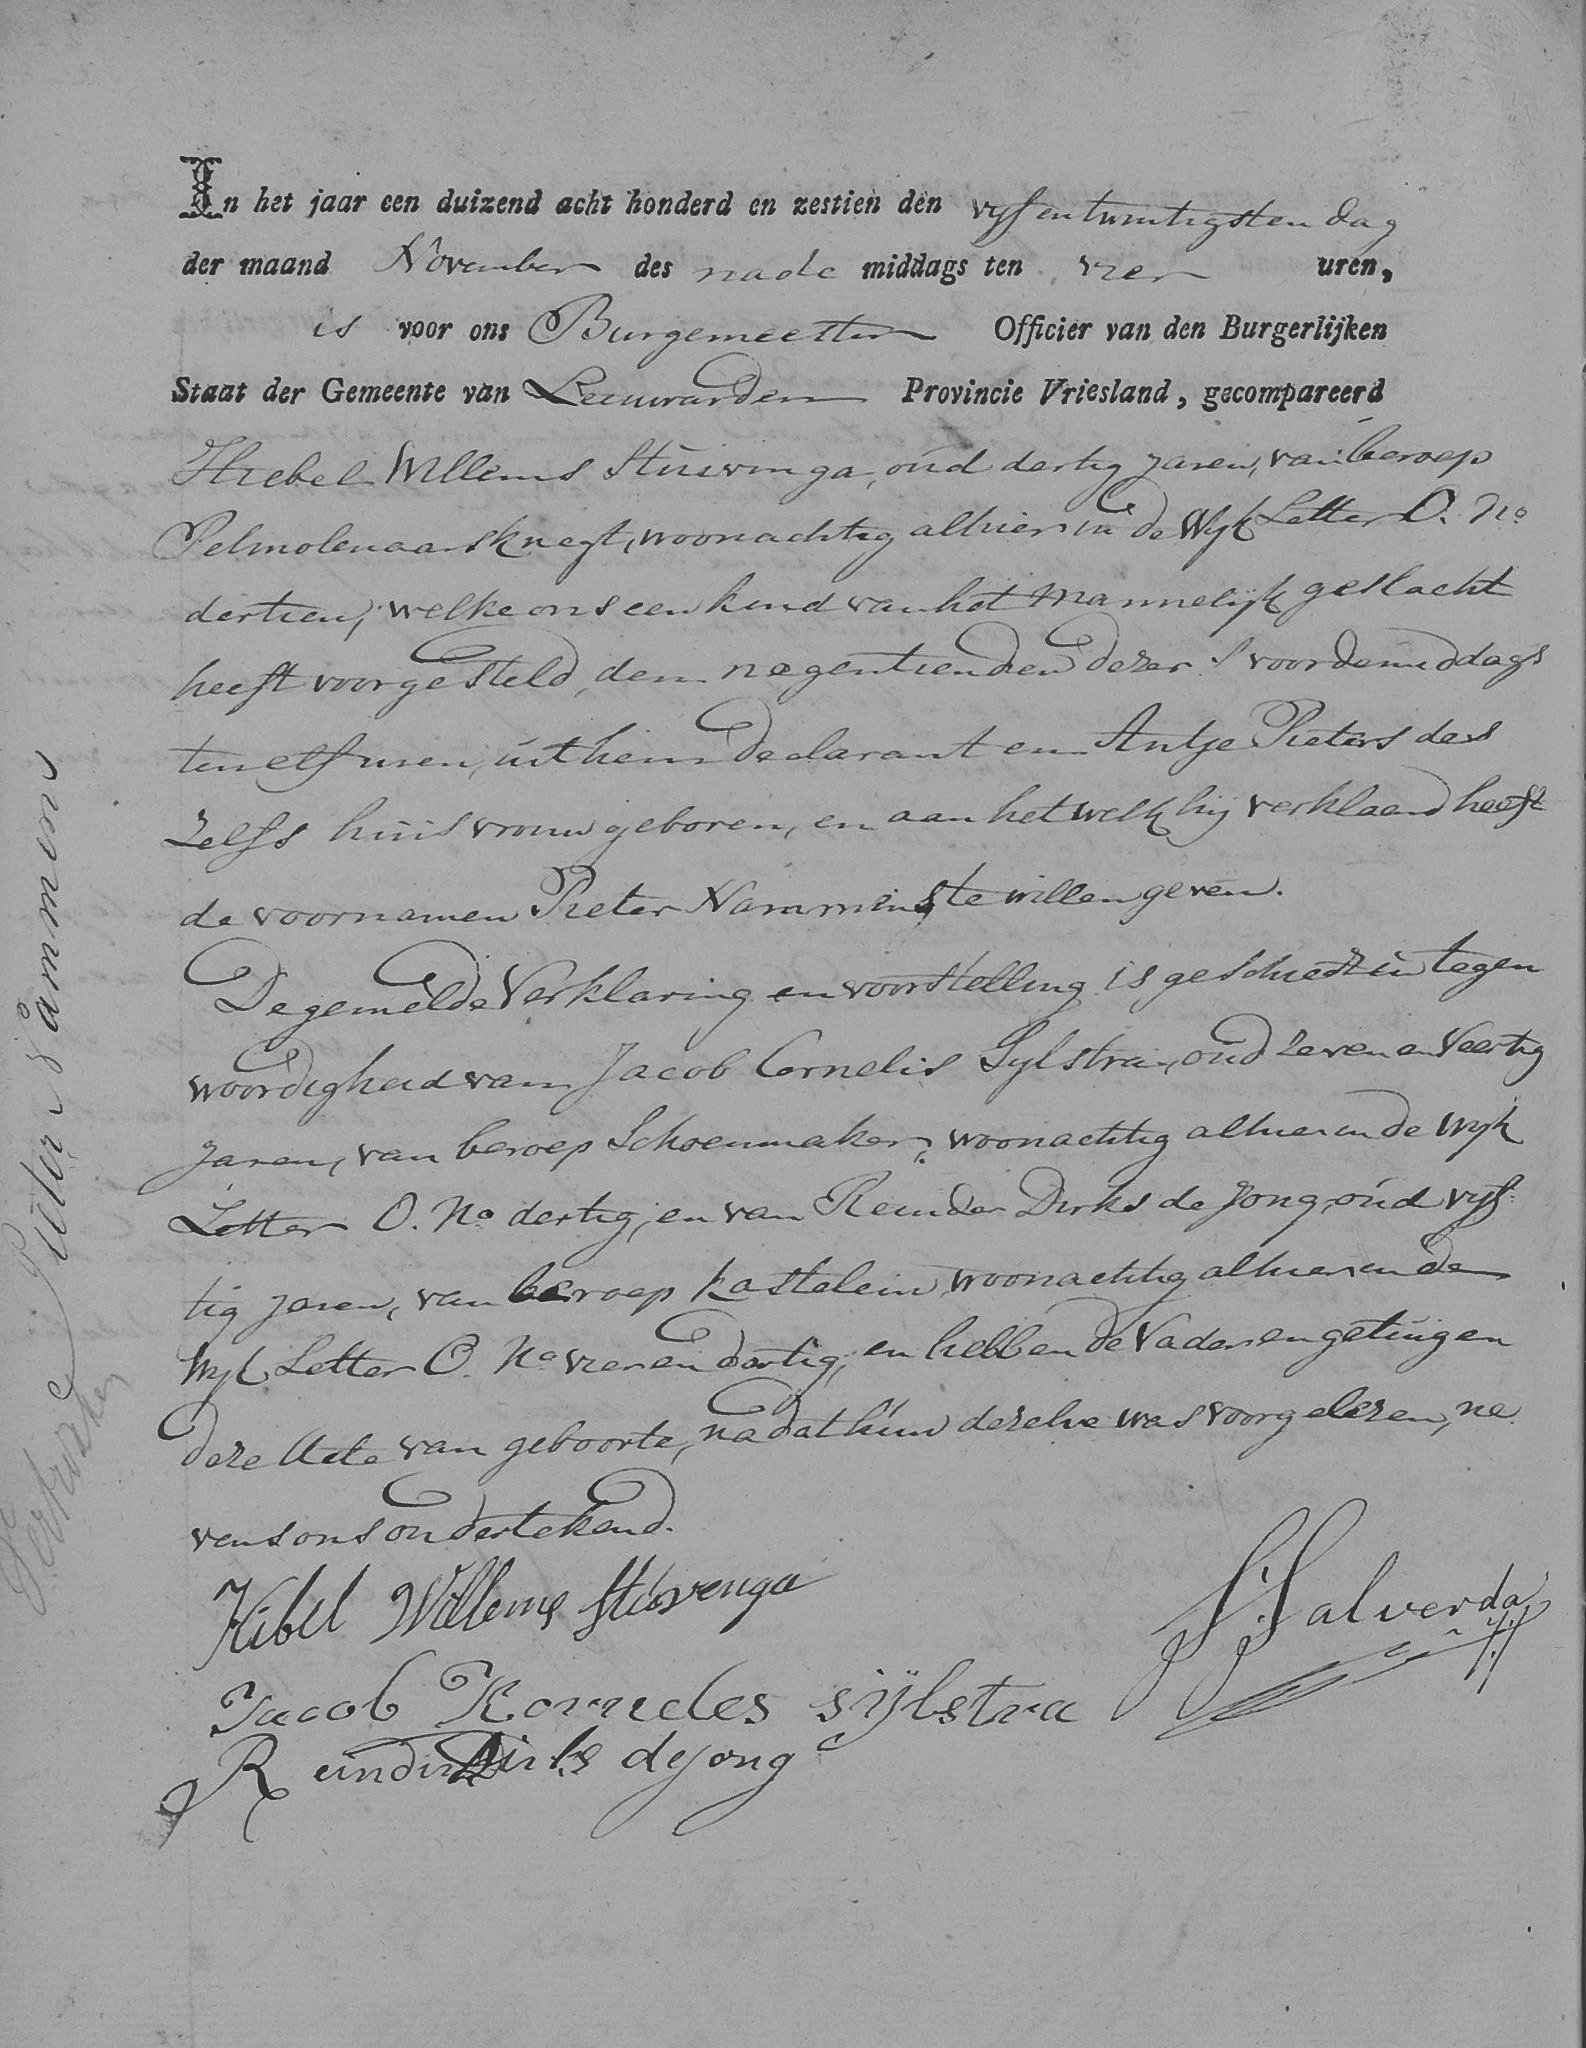 In het jaar een duizend acht honderd en zestien den vyf en twintigsten dag
der maand November des nade middags ten vier uren,
is voor ons Burgemeester Officier van den Burgerlijken
Staat der Gemeente van Leeuwarden Provincie Vriesland, gecompareerd
Hiebel Willems Stuivinga, oud dertig jaren, van beroep
Pelmolenaarsknegt, woonachtig alhier in de Wyk Letter O. No
dertien, welke ons een kind van het mannelyk geslacht
heeft voorgesteld, den negentienden dezer 's voordemiddags
ten elf uren, uit hem declarant en Antje Pieters des
zelfs huisvrouw geboren, en aan het welk hy verklaard heeft
de voornamen Pieter Nammens te willen geven.
De gemelde Verklaring en voorstelling is geschied in tegen
woordigheid van Jacob Cornelis Sylstra, oud zeven en Veertig
jaren, van beroep Schoenmaker, woonachtig alhier in de wyk
Letter O. No dertig, en van Reinder Dirks de Jong, oud vyf
tig jaren, van beroep kastelein, woonachtig alhier in de
Wyk Letter O. No vier en dertig, en hebben de Vader en getuigen
deze Acte van geboorte, na dat hun dezelve was voorgelezen, ne
vens ons ondertekend.
Hibel Willems Stuivenga
S. Salverda
Jacob Korneles sijlstra
Reinder Dirks de jong
Pieter Nammens